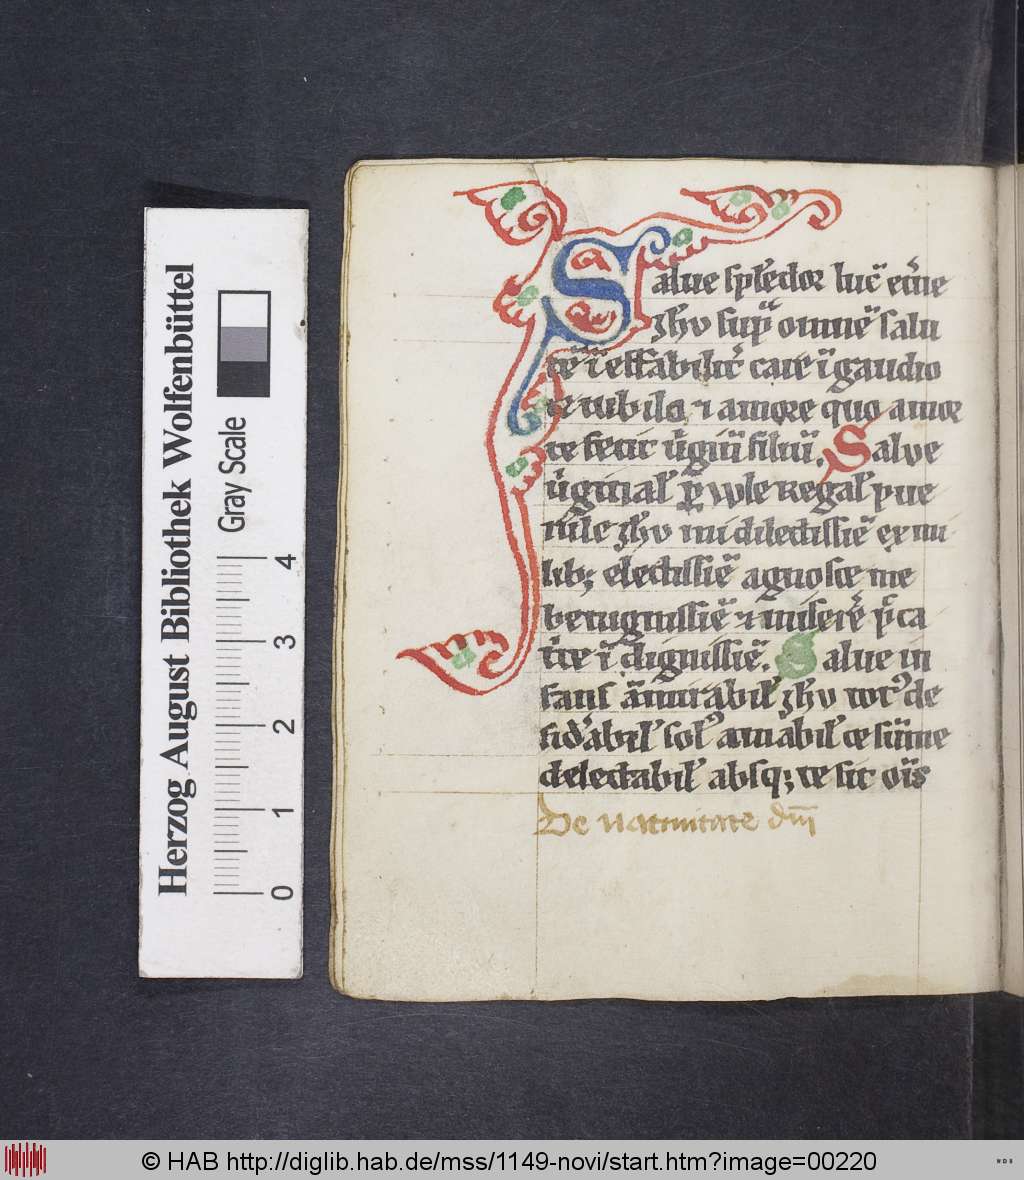 Herzog August Bibliothek Wolfenbüttel
Gray Scale
0 1 2 3 4
Salue splēdor luc̄ etn̄e
ihū sup omnē salu
tē īeffabilit͛ care ī gaudio
et iubilo ⁊ amore quo amor
te fecit v̄ginū filiū. Salve
v̄ginal͛ regal͛ pue
rile ihū mi dilectissiē ex mi
lib; electissiē agnosce me
benignissiē ⁊ miserē p̄ca
ī dignissiē. Salue in
fans am̄irabil͛ ihū tot͛ de
sid͛abil͛ tot͛ amabil͛
delectabil͛ absq; te sit oīs
De Natiuitate dm̄
© HAB http://diglib.hab.de/mss/1149-novi/start.htm?image=00220
WDB